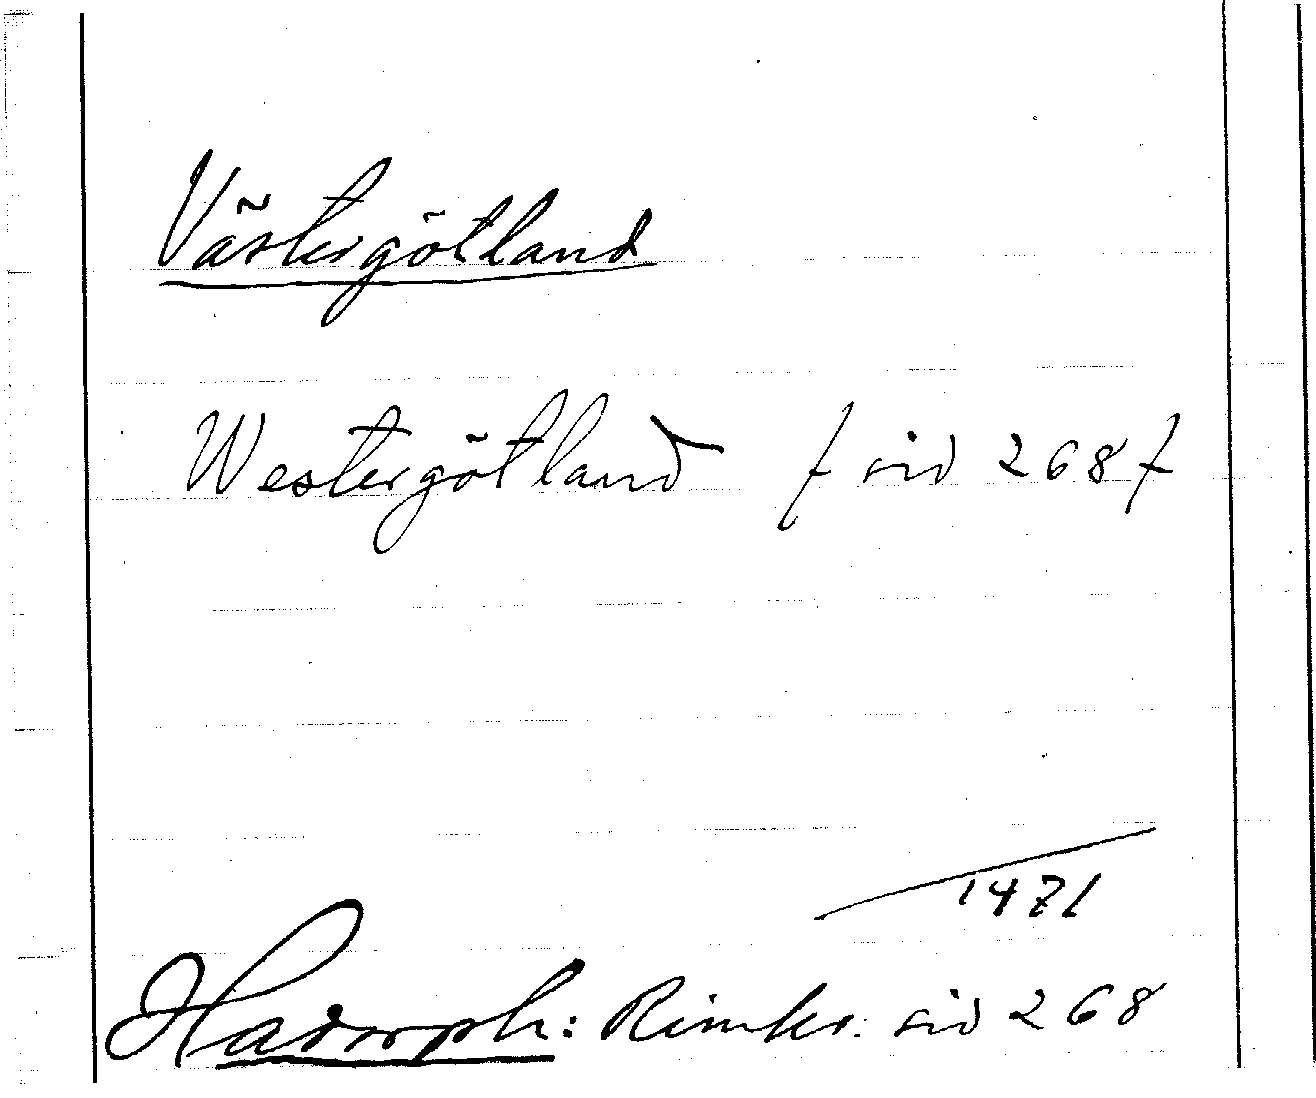 Västergötland
Westergötland f sid 268 f
1471
Hadorph: Rimkr. sid 268